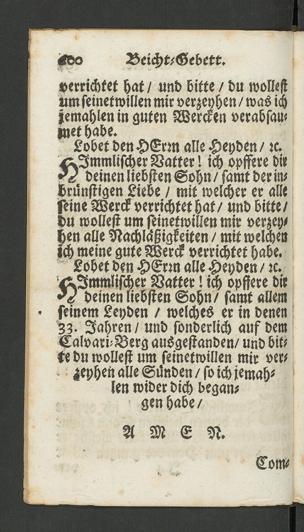 200 Beicht-Gebett.
verrichtet hat / und bitte / du wollest
um seinetwillen mir verzeyhen / was ich
jemahlen in guten Wercken verabsau-
met habe.
Lobet den HErrn alle Heyden / ꝛc.
HImmlischer Vatter! ich opffere dir
deinen liebsten Sohn / samt der in-
brünstigen Liebe / mit welcher er alle
seine Werck verrichtet hat / und bitte /
du wollest um seinetwillen mir verzey-
hen alle Nachläßigkeiten / mit welchen
ich meine gute Werck verrichtet habe.
Lobet den HErrn alle Heyden / ꝛc.
HImmlischer Vatter! ich opffere dir
deinen liebsten Sohn / samt allem
seinem Leyden / welches er in denen
33. Jahren / und sonderlich auf dem
Calvari-Berg ausgestanden / und bit-
te du wollest um seinetwillen mir ver-
zeyhen alle Sünden / so ich jemah-
len wider dich began-
gen habe /
A M E N.
Com-